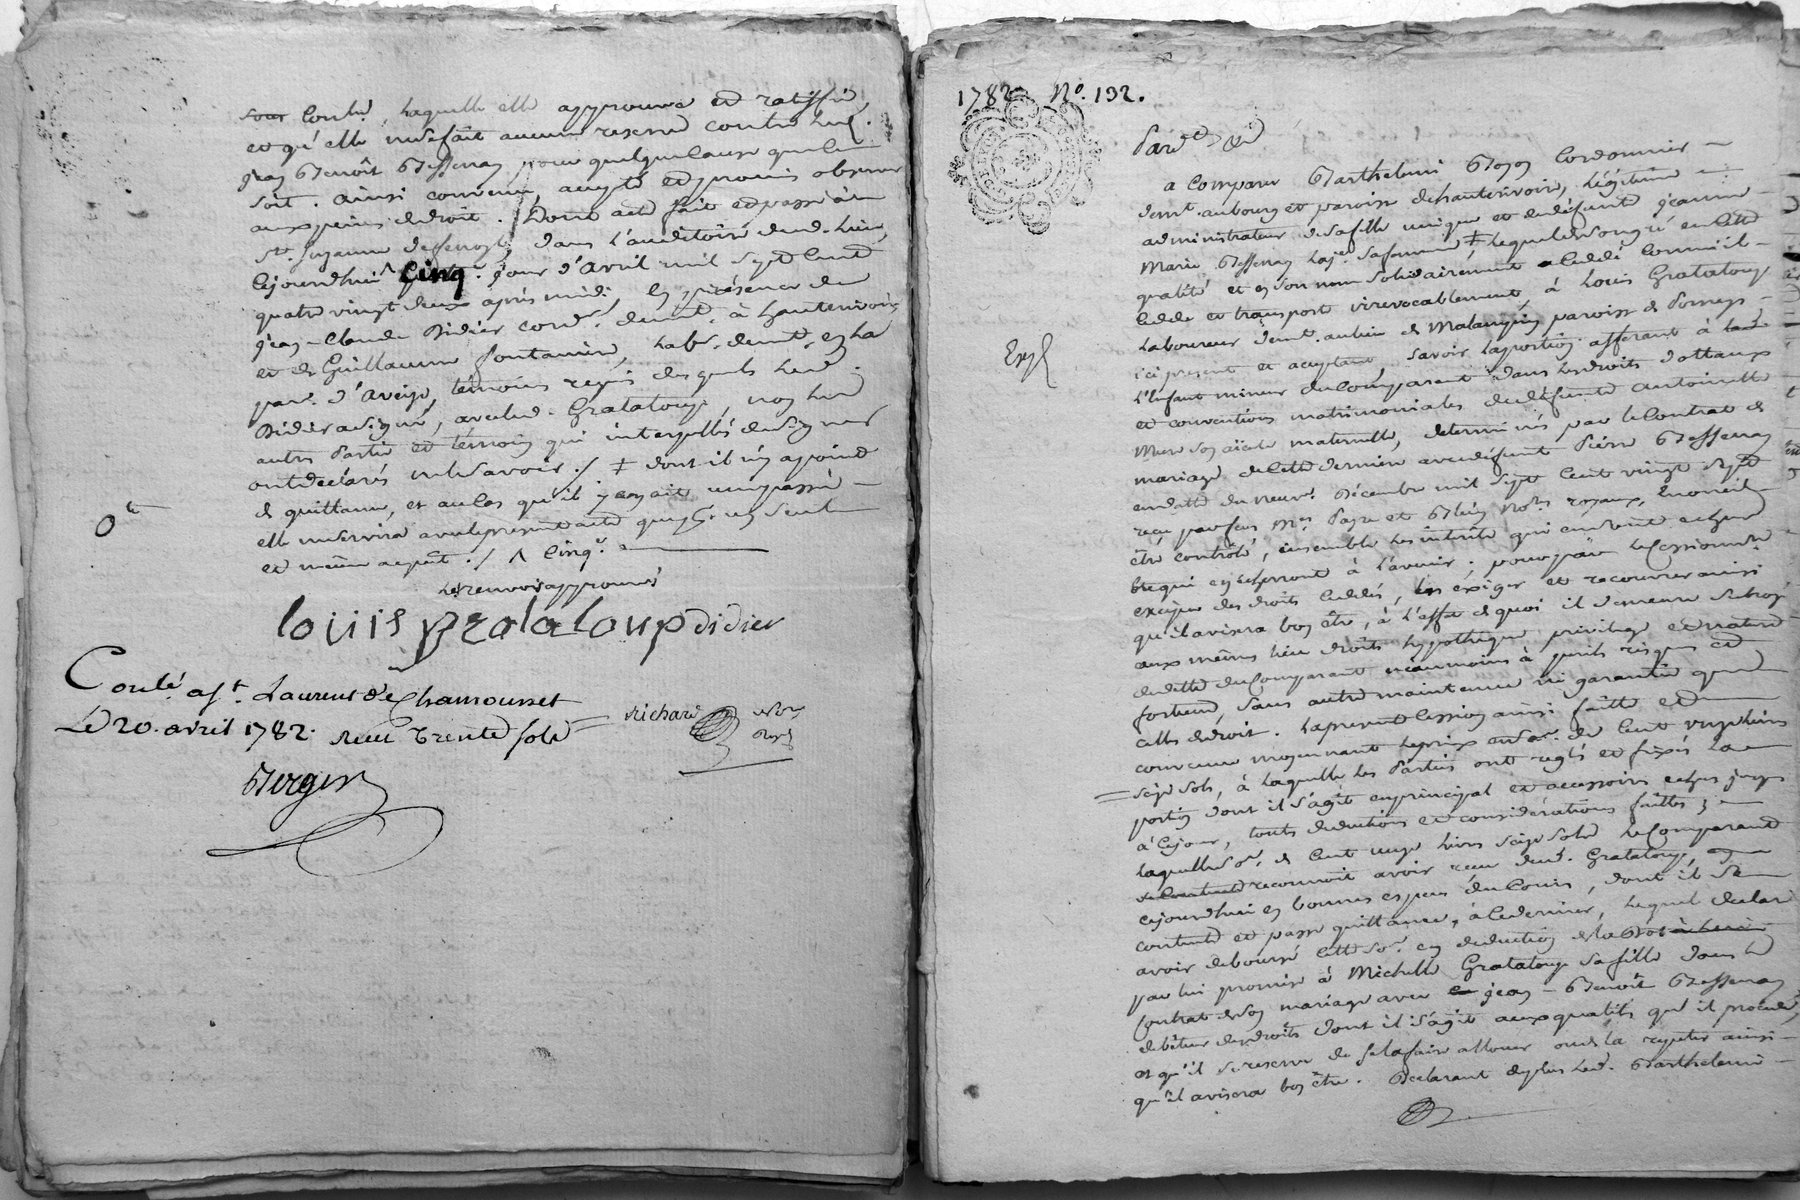 sous Contre, laquelle elle approuve et ratiffie,
et qu'elle ne se fait aucune reserve contre led.
jean Benoît Bessenay pour quelque cause que ce
soit. ainsi convenu, accepté et promis observer
aux peines de droit. Dont acte fait et passé à
Ste. Suzanne dans l'auditoire dud. lieu,
Cejourdhui cinq jour d'Avril mil sept cent
quatre vingt deux après midi, En présence de
jean-Claude Didier cord. demt. à hauterivoire
et de Guillaume fontanier, Labr. demt. en la
par. d'Aveize, témoins requis desquels led.
Didier a signé, avec led. Grataloup, non led
autre Partie et témoin qui interpellés de signer
ont déclarés ne le savoir ./ ‡ dont il n'y a point
de quittance, et au cas qu'il y en ait une passée —
elle ne servira avec le present acte que d'un seul
et même acquit ./ ^ Cinq
Les renvois approuvé
louis grataloup didier
Contlé. a St. Laurent de Chamousset
Le 20. avril 1782. Reçu trente sols
Richard
Berger
1782 No. 132.
Pard.t
a Comparu Barthelemi Cordonnier —
demt. au bourg et paroisse d'hauterivoire, Légitime
administrateur de sa fille unique et de défunte jeanne
Marie Bessenay sa femme ‡, lequel de son gré en cette
qualité et en son nom solidairement a Cedé comme il
cede et transport irrevocablement, à Louis Grataloup
Laboureur demt. au lieu de Malaugnin paroisse de Pomeys —
ici present et acceptant savoir la portion afferant à lad.
Exp
L'Enfant mineur du Comparant dans les droits dottaux
et conventions matrimoniales de défunte Antoinette
Mure son aïeule maternelle, déterminés par le Contrat de
mariage de cette derniere avec defunt Pierre Bessenay
en datte du neuf Décembre mil sept Cent vingt sept
reçu par feus Mes. Payre et Not.res royaux,
être contrôlé, ensemble les interets qui en sont echus
et qui en echerront à l'avenir; pour par le Cessionnre
exciper des droits Cedés, les exiger et recouvrer ainsi
qu'il avisera bon être, à l'effet de quoi il demeure Subrogé
aux mêmes lieu droits hypotheque privilege et nature
de dette du Comparant neanmoins à perils risques et
fortune, sans autre maintenue ni garantie que
celle de droit. La presente Cession ainsi faitte et
convenue moyennant le prix de Cent unze livres
seize sols, à laquelle les Parties ont reglés et fixés la
portion dont il s'agit en principal et accessoires echus jusqu'
à Cejour, toutes deductions et considérations faittes;
laquelle so. de Cent unze livres seize sols le Comparant
reconnoit avoir reçu dud. Grataloup,
cejourdhui en bonnes especes du Cours, dont il se
contente et passe quittance, à ce dernier, lequel declare
avoir deboursé cette so. en deduction de la Dot
par lui promise à Michelle Grataloup sa fille dans le
Contrat de son mariage avec jean-Benoît Bessenay
débiteur des droits dont il s'agit aux qualités qu'il procede,
et qu'il se reserve de se la faire allouer ou de la repeter ainsi —
qu'il avisera bon être. Declarant de plus led. Barthelemi —